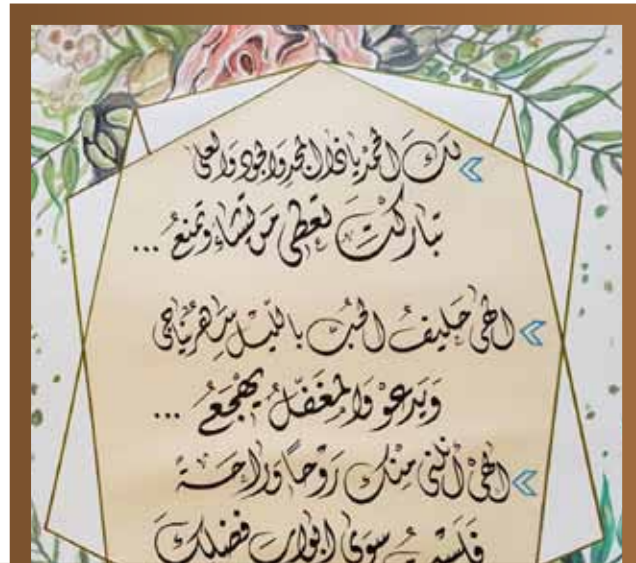 لكَ الحمدُ يا ذا المجدِ والجود والعلى
تباركتَ تعطي من تشاء وتمنعُ ...
الهي حليفُ الحُبِّ بالليل ساهرٌ يناجي
وَيَدعوْ والمغفّلُ يهْجَعُ ...
الهيْ أنلني منك رَوْحاً وراحةً
فلستُ سوى ابواب فضلكَ